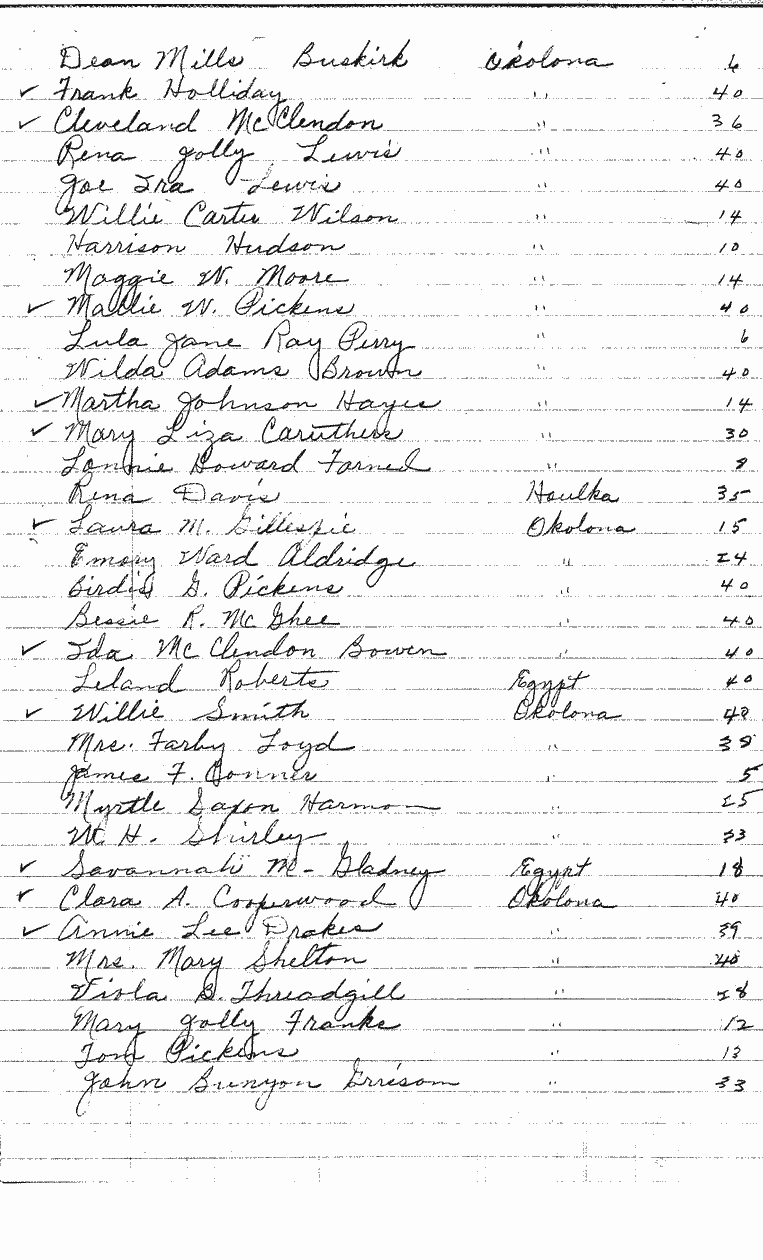 Dean Mills Buskirk Okolona 6
✓ Frank Holliday " 40
✓ Cleveland McClendon " 36
Rena Jolly Lewis " 40
Joe Ira Lewis " 40
Willie Carter Wilson " 14
Harrison Hudson " 10
Maggie W. Moore " 14
✓ Mallie W. Pickens " 40
Lula Jane Ray Perry 6
Wilda Adams Brown " 40
✓ Martha Johnson Hayes " 14
✓ Mary Liza Caruthers " 30
Lonnie Howard Farned " 8
Rena Davis Houlka 35
✓ Laura M. Gillespie Okolona 15
Emory Ward Aldridge " 24
Birdie G. Pickens " 40
Bessie R. McGhee " 40
✓ Ida McClendon Bowen " 40
Leland Roberts Egypt 40
✓ Willie Smith Okolona
Mrs. Farby Loyd " 38
James F. Conner " 5
Myrtle Saxon Harmon " 25
H. Shirley " 33
✓ Savannah Mc-Gladney Egypt 18
✓ Clara A. Cooperwood Okolona 40
✓ Annie Lee Drakes " 39
Mrs. Mary Shelton " 40
Viola B. Threadgill " 28
Mary Jolly Franks " 12
Tom Pickens " 13
John Bunyon " 33